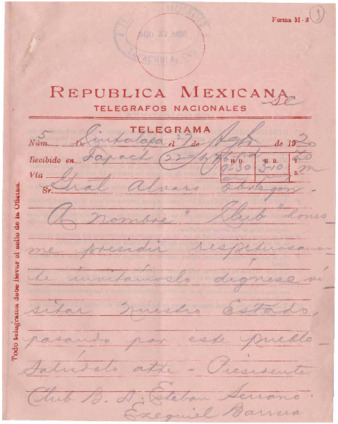 Forma M-2 1
REPUBLICA MEXICANA
TELEGRAFOS NACIONALES
TELEGRAMA
Núm. 5 de Cintalapa el 19 de Agto de 1920
Recibido en Tapach
Vía
Sr. Gral Alvaro Obregon.
A nombre "Club" honro
me presidir respetuosamen
te invitámoslo dígnese vi
sitar nuestro Estado,
pasando por este pueblo.
Salúdolo atte - Presidente
Club B. D. Esteban Serrano.
Ezequiel Barrera
Todo telegrama debe llevar el sello de la Oficina.